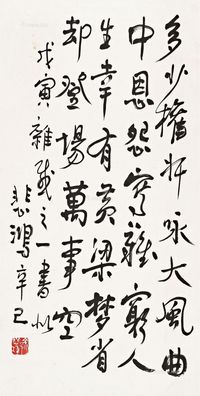 多少擔竿咏大風曲
中恩怨寫難窮人
生幸有黃粱梦省
却登場萬事空
戊寅雜感之一書似
悲鴻辛巳